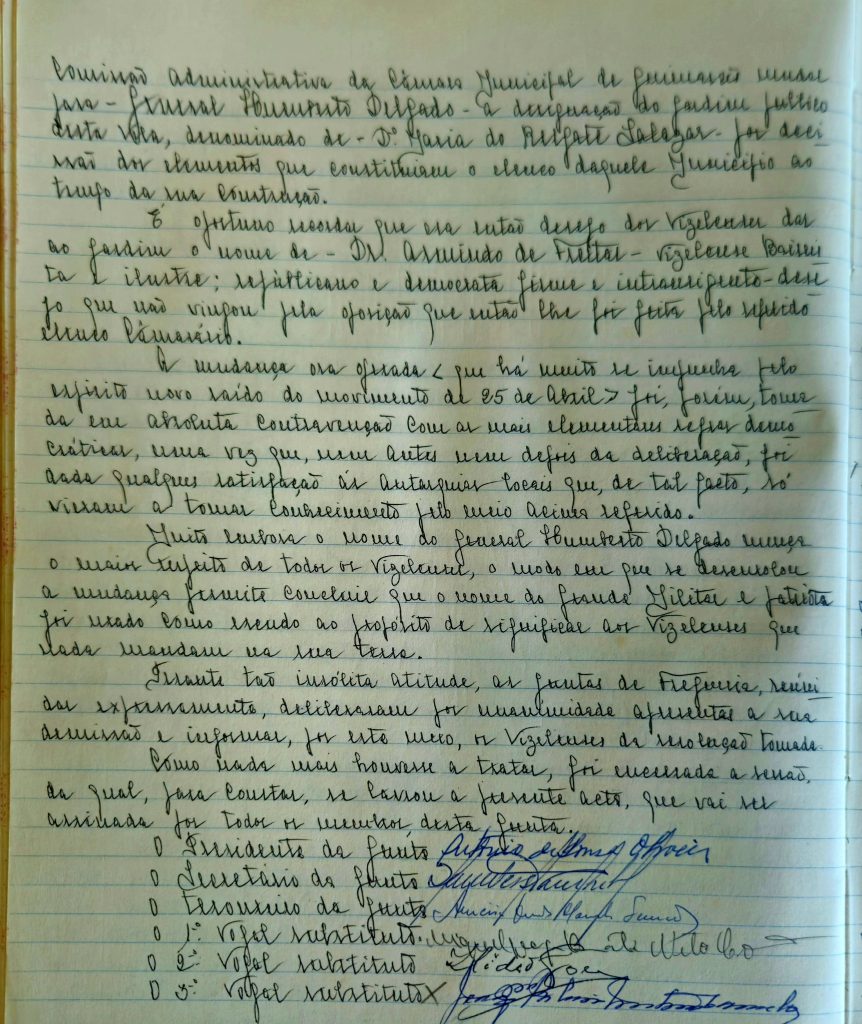 Comissão Administrativa da Câmara Municipal de Guimarães mudar
para - General Humberto Delgado - a designação do Jardim público
desta Vila, denominado de - D.ª Maria do Resgate Salazar - por deci-
são dos elementos que constituiam o elenco daquele Município ao
tempo da sua Construção.
É oportuno recordar que era então desejo dos Vizelenses dar
ao Jardim o nome de - Dr. Armindo de Freitas - Vizelense Bairris
ta e ilustre; républicano e democrata firme e intransigente - dese-
jo que não vingou pela oposição que então lhe foi feita pelo referido
elenco Câmarário.
A mudança ora operada < que há muito se impunha pelo
espírito novo saído do movimento de 25 de Abril > foi, porém, toma-
da em absoluta contravenção com as mais elementares regras demo-
cráticas, uma vez que, nem antes nem depois da deliberação, foi
dada qualquer satisfação ás autarquias locais que, de tal facto, só
vieram a tomar conhecimento pelo meio acima referido.
Muito embora o nome do General Humberto Delgado mereça
o maior respeito de todos os Vizelenses, o modo em que se desenrolou
a mudança permite concluir que o nome do grande Militar e patriota
foi usado como escudo ao propósito de significar aos Vizelenses que
nada mandam na sua terra.
Perante tão insólita atitude, as Juntas de Freguesia, reúni-
das expressamente, deliberaram por unanimidade apresentar a sua
demissão e informar, por este meio, os Vizelenses da resolução tomada.
Como nada mais houvesse a tratar, foi encerrada a sessão,
da qual, para constar, se lavrou a presente acta, que vai ser
assinada por todos os membros desta Junta.
O Presidente da Junta António de Sousa Oliveira
O Secretário da Junta
O Tesoureiro da Junta
O 1.º Vogal substituto
O 2.º Vogal substituto
O 3.º Vogal substituto X